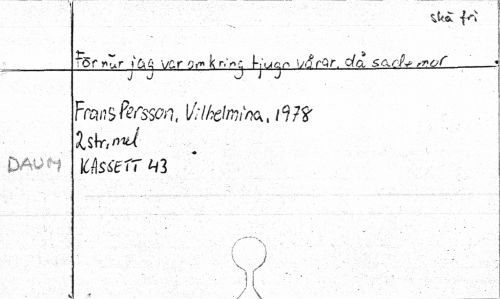 skä fri
För när jag var omkring tjugo vårar, då sade mor
Frans Persson, Vilhelmina, 1978
2 str, mel
DAUM KASSETT 43